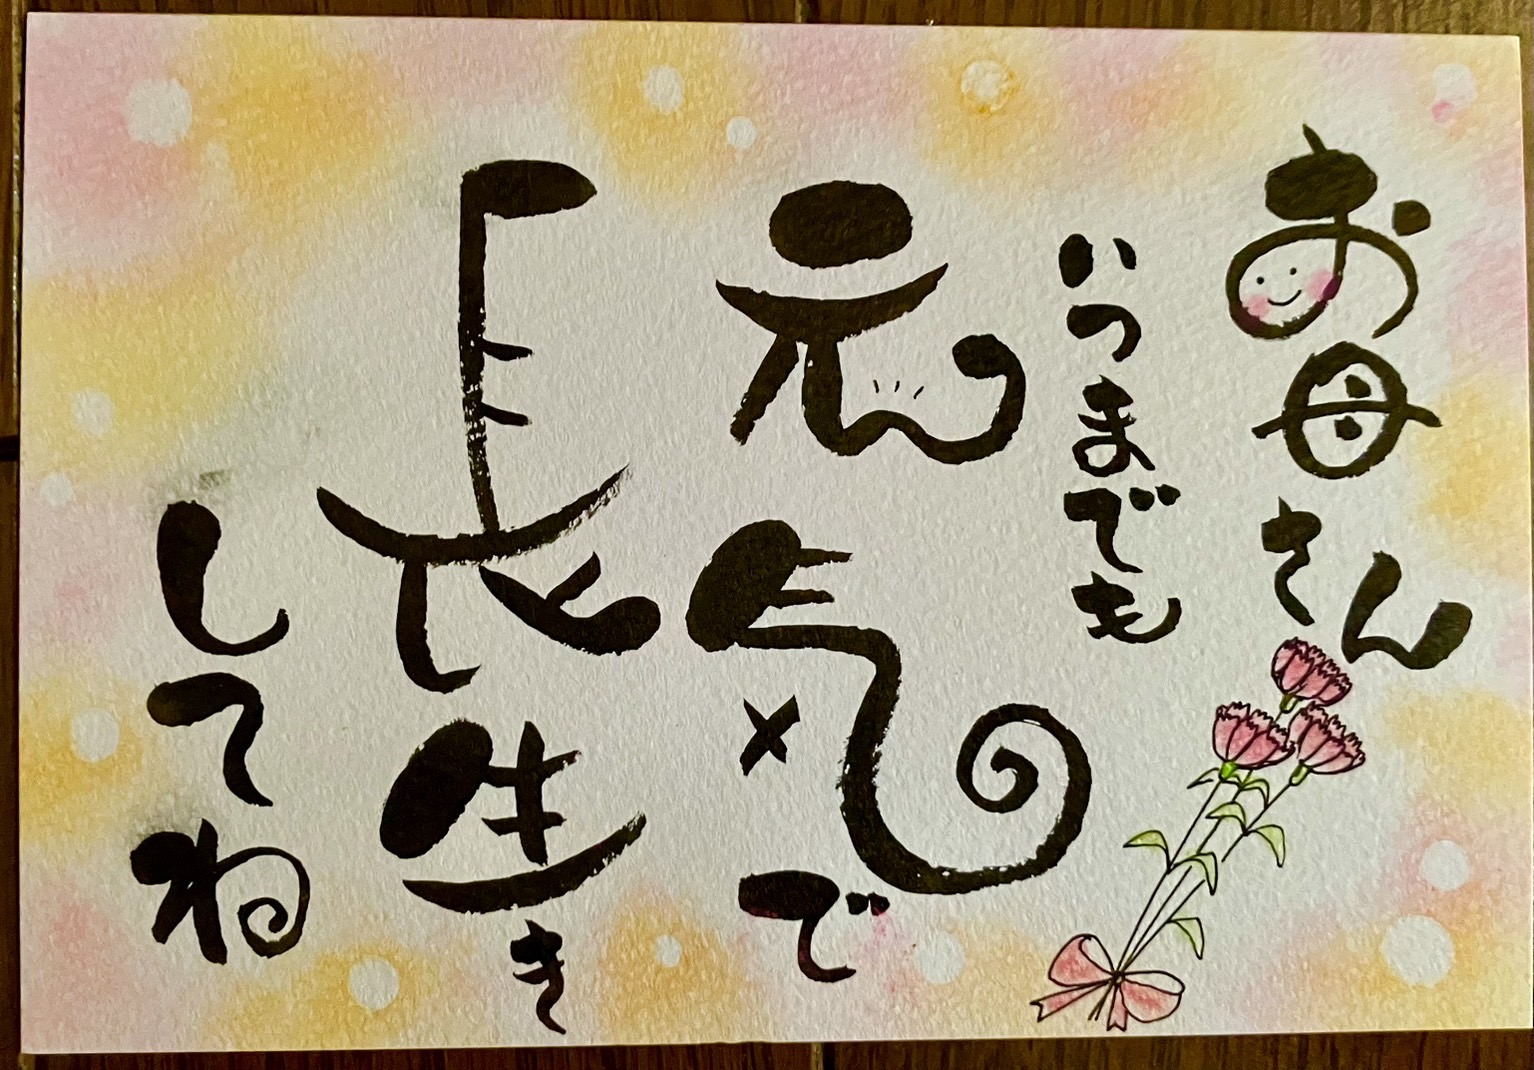 お母さん
いつまでも
元気で
長生き
してね